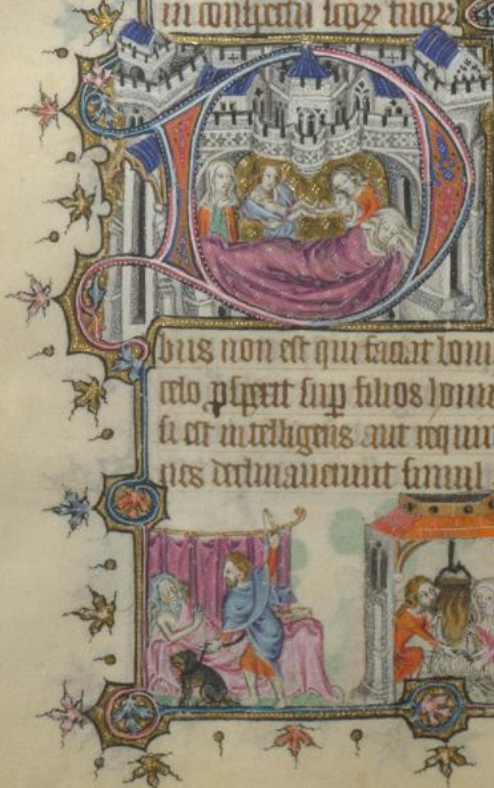 in conspectu scoꝝ tuoꝝ
D
bus non est qui faciat bonu
celo ꝓspexit suꝑ filios homi
si est intelligens aut requir
nes declinauerunt simul